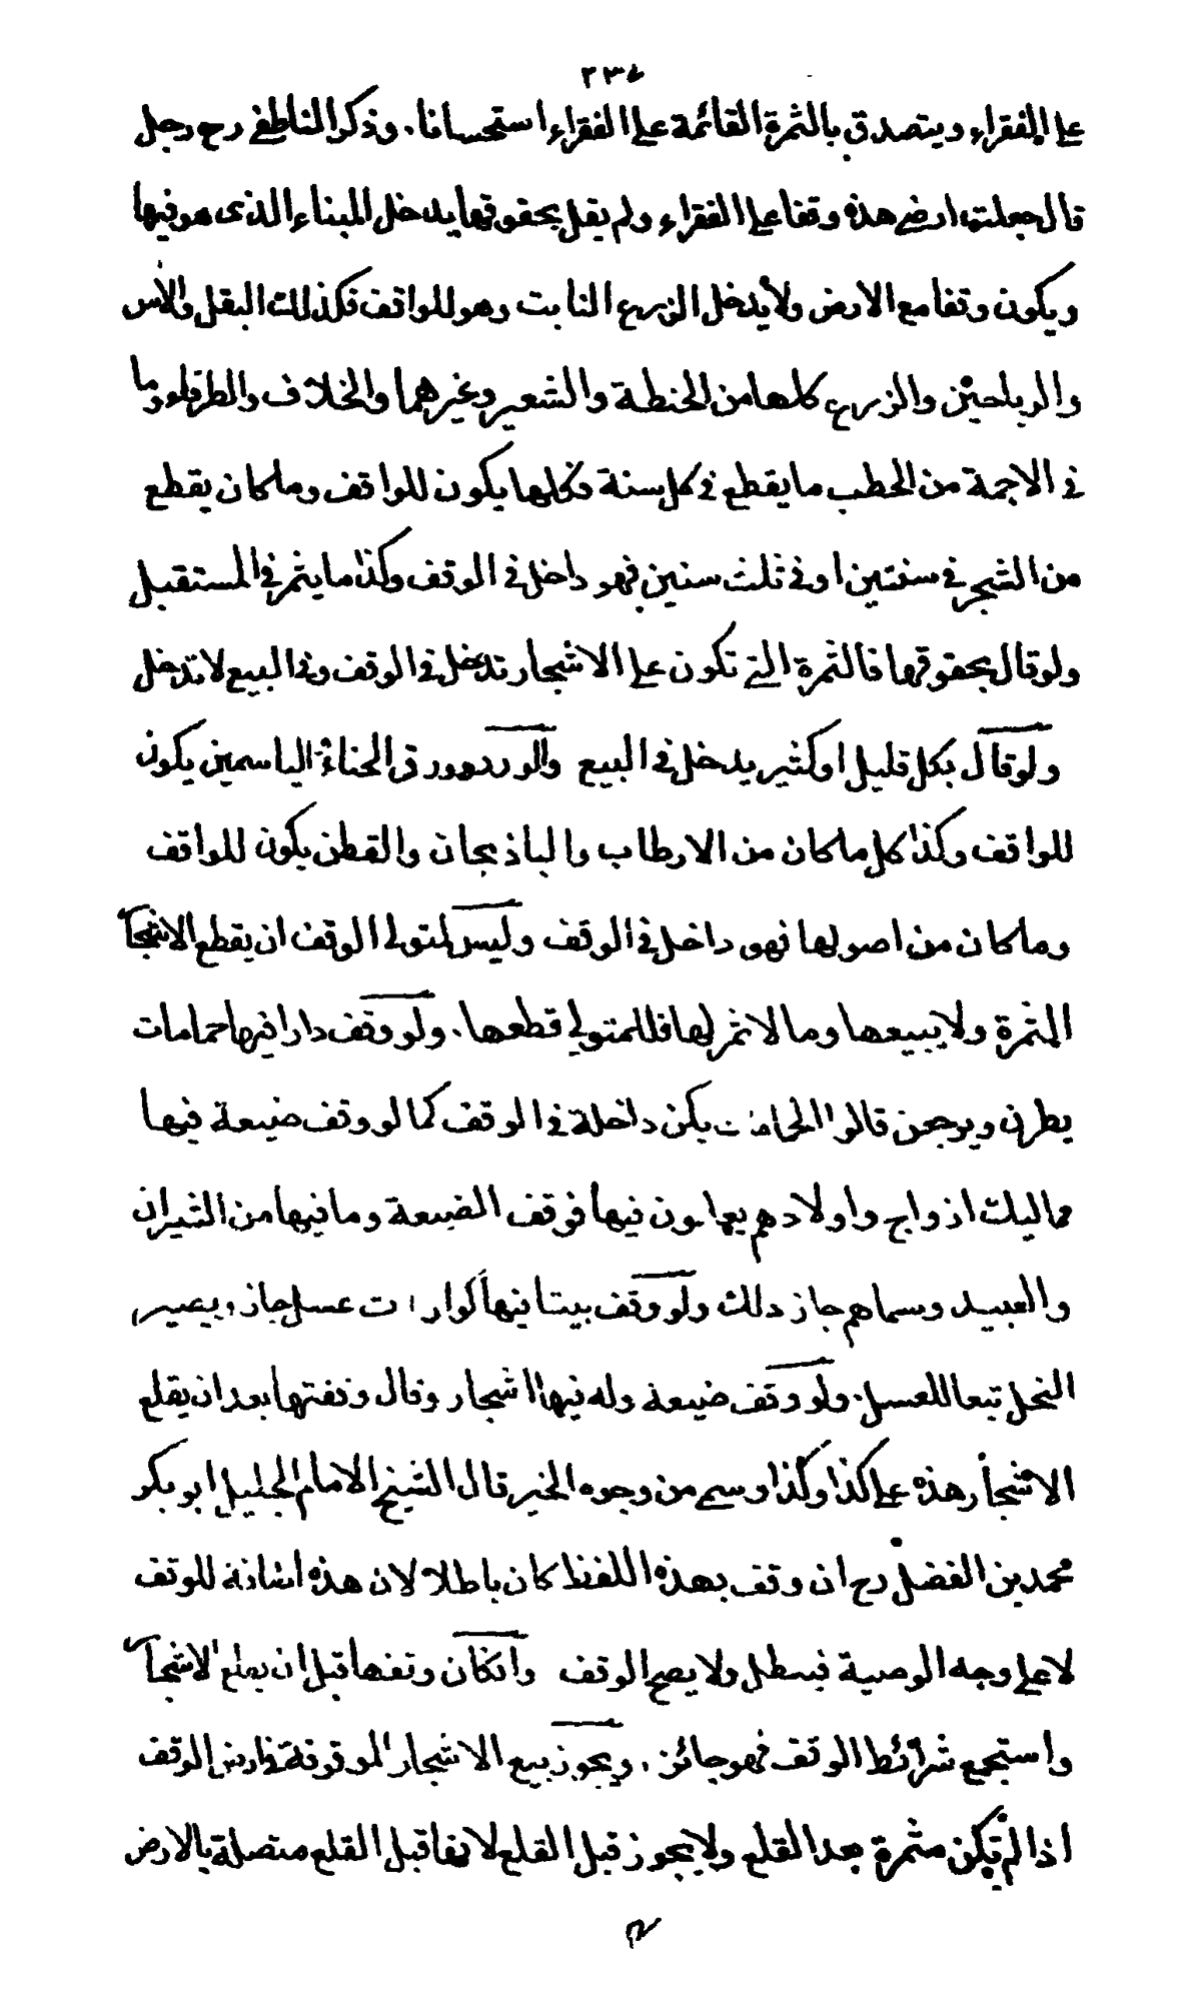 ٢٣٤
على الفقراء ويتصدق بالثمرة القائمة على الفقراء استحسانا. وذكر الناطفى رح رجل
قال جعلت ارضى هذه وقفا على الفقراء ولم يقل بحقوقها يدخل البناء الذى هو فيها
ويكون وقفا مع الارض ولا يدخل الزرع النابت وهو للواقف فكذلك البقل والآس
والرياحين والزرع كلها من الحنطة والشعير وغيرهما والخلاف والطرفاء وما
فى الاجمة من الحطب ما يقطع فى كل سنة فكلها يكون للواقف وما كان يقطع
من الشجر فى سنتين او فى ثلث سنين فهو داخل فى الوقف وكذا ما يثمر فى المستقبل
ولو قال بحقوقها فالثمرة التى تكون على الاشجار تدخل فى الوقف وفى البيع لا تدخل
ولو قال بكل قليل او كثير يدخل فى البيع والورد وورق الحناء والياسمين يكون
للواقف وكذا كل ما كان من الارطاب والباذنجان والقطن يكون للواقف
وما كان من اصولها فهو داخل فى الوقف وليس لمتولى الوقف ان يقطع الاشجار
المثمرة ولا يبيعها وما لا ثمر لها فللمتولى قطعها. ولو وقف دارا فيها حمامات
يطرن ويرجعن قالوا الحمامات يكن داخلة فى الوقف كما لو وقف ضيعة فيها
مماليك ازواج واولادهم يعملون فيها فوقف الضيعة وما فيها من الثيران
والعبيد وسماهم جاز ذلك ولو وقف بيتا فيها كوارات عسل جاز ويصير
النحل تبعا للعسل. ولو وقف ضيعة وله فيها اشجار وقال وقفتها بعد ان يقلع
الاشجار هذه على كذا وكذا وسمى من وجوه الخير قال الشيخ الامام الجليل ابو بكر
محمد بن الفضل رح ان وقف بهذه اللفظ كان باطلا لان هذه اضافة للوقف
لا على وجه الوصية فيبطل ولا يصح الوقف وانكان وقفها قبل ان يقلع الاشجار
واستجمع شرائط الوقف فهو جائز. ويجوز بيع الاشجار الموقوفة فى ارض الوقف
اذا لم تكن مثمرة بعد القلع ولا يجوز قبل القلع لانها قبل القلع متصلة بالارض